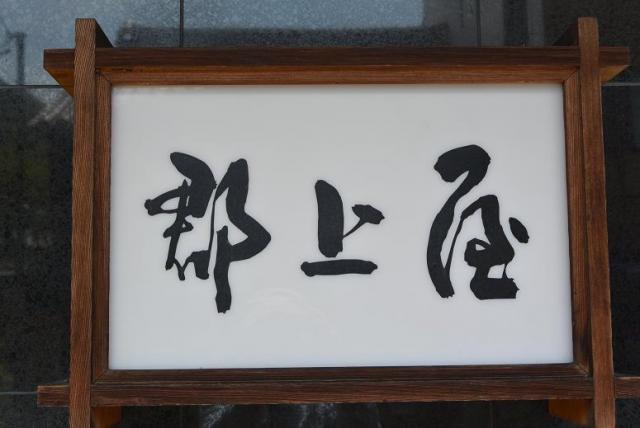 郡上屋